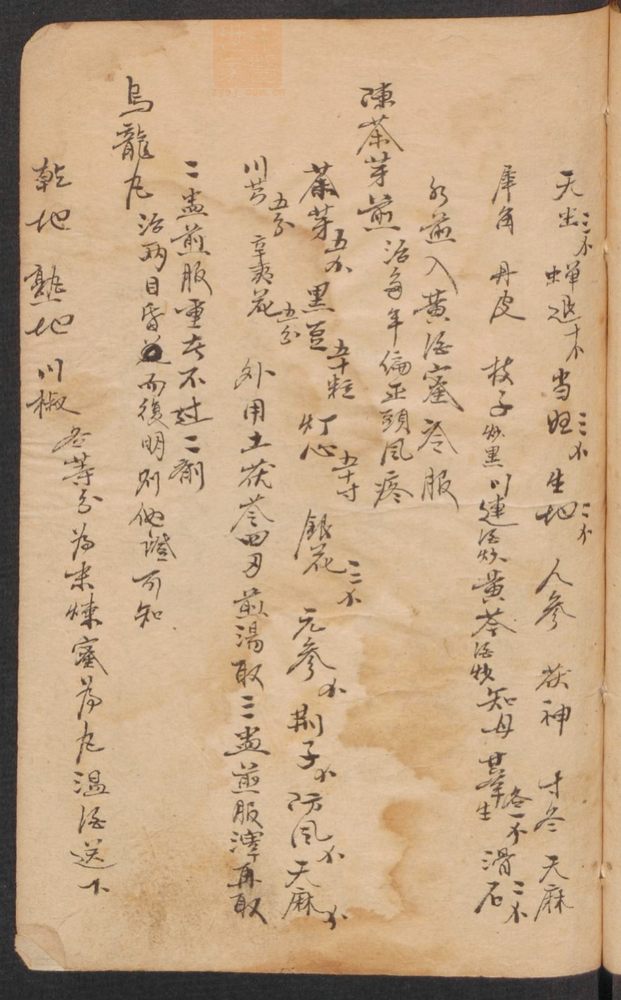 天虫三分 蟬退十个 当归三分 生地二分 人參 茯神 寸冬 天麻
犀角 丹皮 枝子炒黑 川連酒炒 黄芩酒炒 知母 甘草生 各一分 滑石二分
水煎入黄酒蜜冷服
陳茶芽煎 治每年偏正頭風疼
茶芽五分 黑豆五十粒 灯心五十寸 銀花三分 元參分 荆子分 防風分 天麻分
川芎五分 辛夷花五分 外用土茯苓四刃煎湯取三盅煎服滓再取
二盅煎服重者不过二劑
烏龍丸 治两目昏 而復明别他證可知
乾地 熟地 川椒 各等分为末煉蜜为丸温酒送下